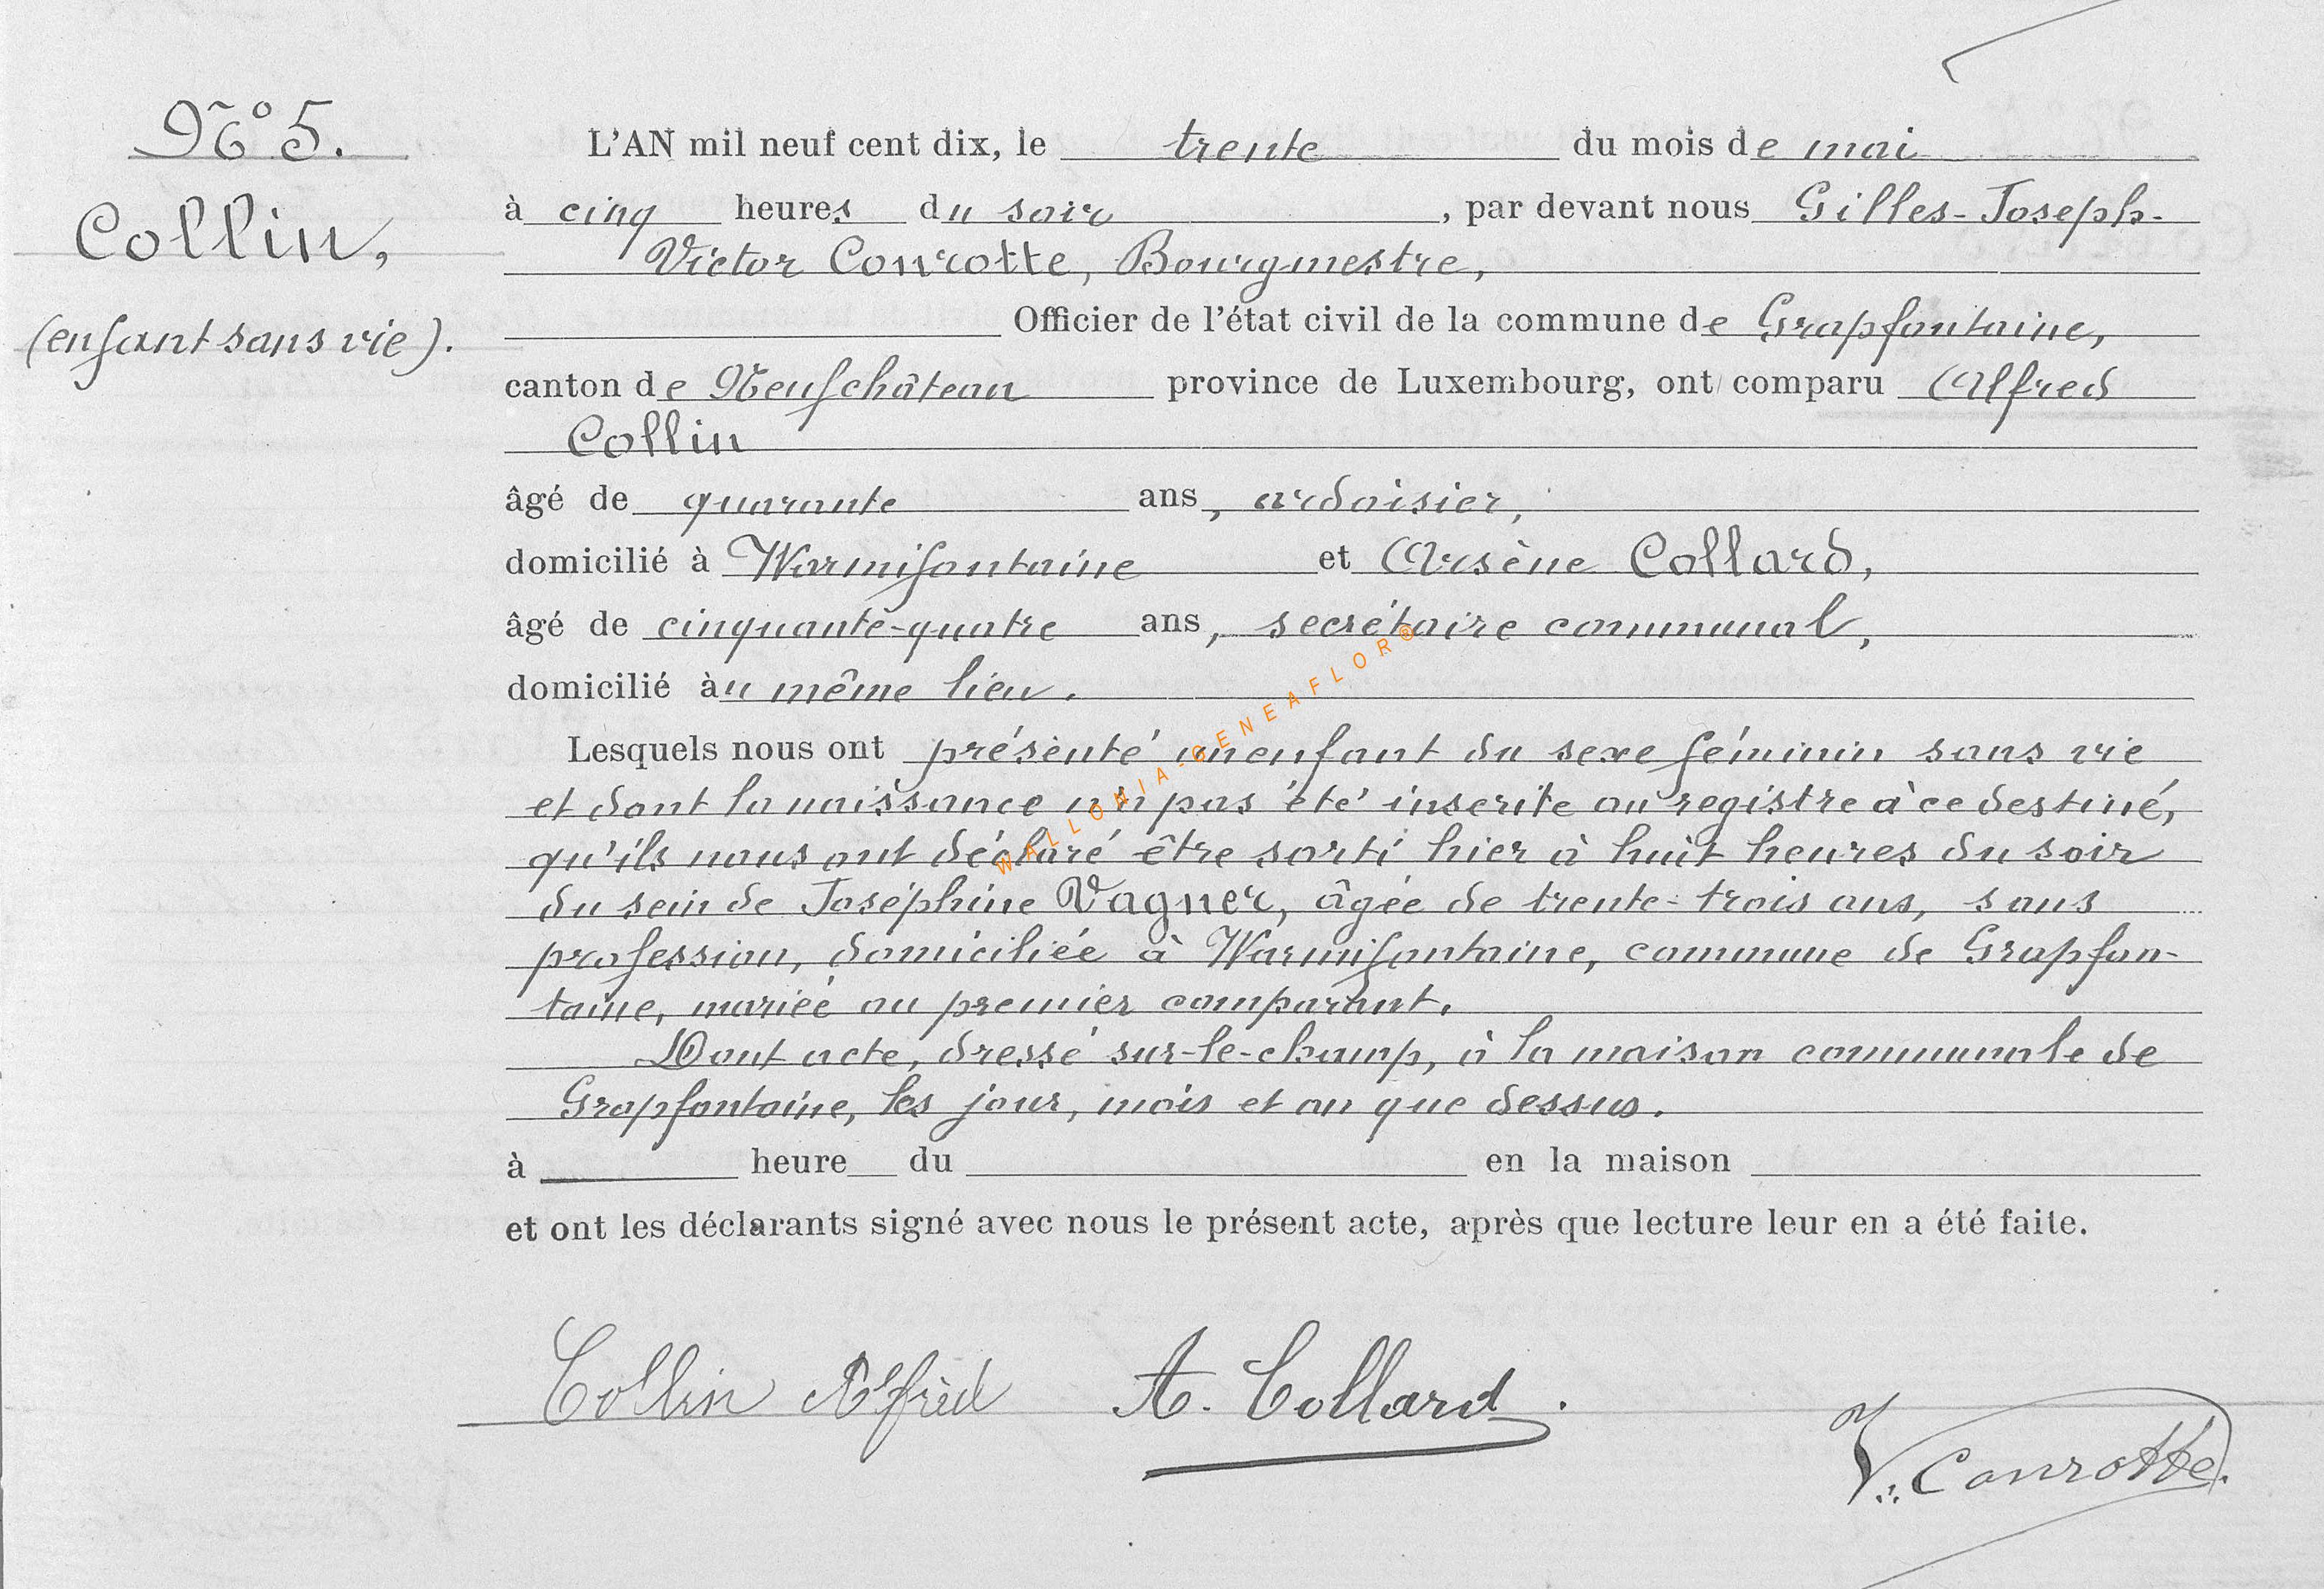 N° 5.
Collin,
(enfant sans vie).
L'AN mil neuf cent dix, le trente du mois de mai
à cinq heures du soir, par devant nous Gilles-Joseph-
Victor Conrotte, Bourgmestre,
Officier de l'état civil de la commune de Grapfontaine,
canton de Neufchâteau province de Luxembourg, ont comparu Alfred
Collin
âgé de quarante ans, ardoisier,
domicilié à Warmifontaine et Arsène Collard,
âgé de cinquante-quatre ans, secrétaire communal,
domicilié àu même lieu.
Lesquels nous ont présenté un enfant du sexe féminin sans vie
et dont la naissance n'a pas été inscrite au registre à ce destiné,
qu'ils nous ont déclaré être sorti hier à huit heures du soir
du sein de Joséphine Vagner, âgée de trente-trois ans, sans
profession, domiciliée à Warmifontaine, commune de Grapfon-
taine, mariée au premier comparant.
Dont acte, dressé sur-le-champ, à la maison communale de
Grapfontaine, les jour, mois et an que dessus.
à heure du en la maison
et ont les déclarants signé avec nous le présent acte, après que lecture leur en a été faite.
Collin Alfred A. Collard.
V. Conrotte.
WALLONIA-GENEAFLOR®